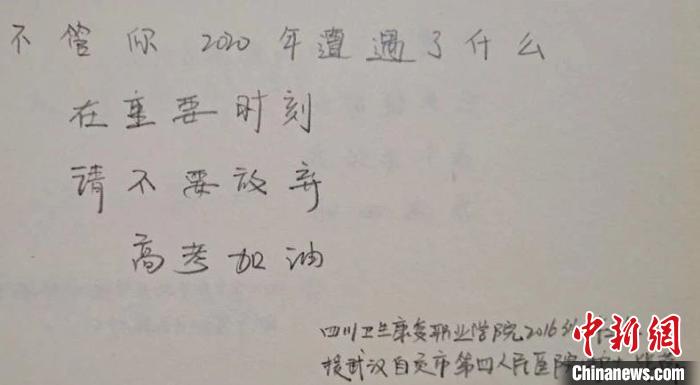 不管你 2020 年遭遇了什么
在重要时刻
请不要放弃
高考加油
四川卫生康复职业学院2016级
援武汉自贡市第四人民医院
中新网
Chinanews.com